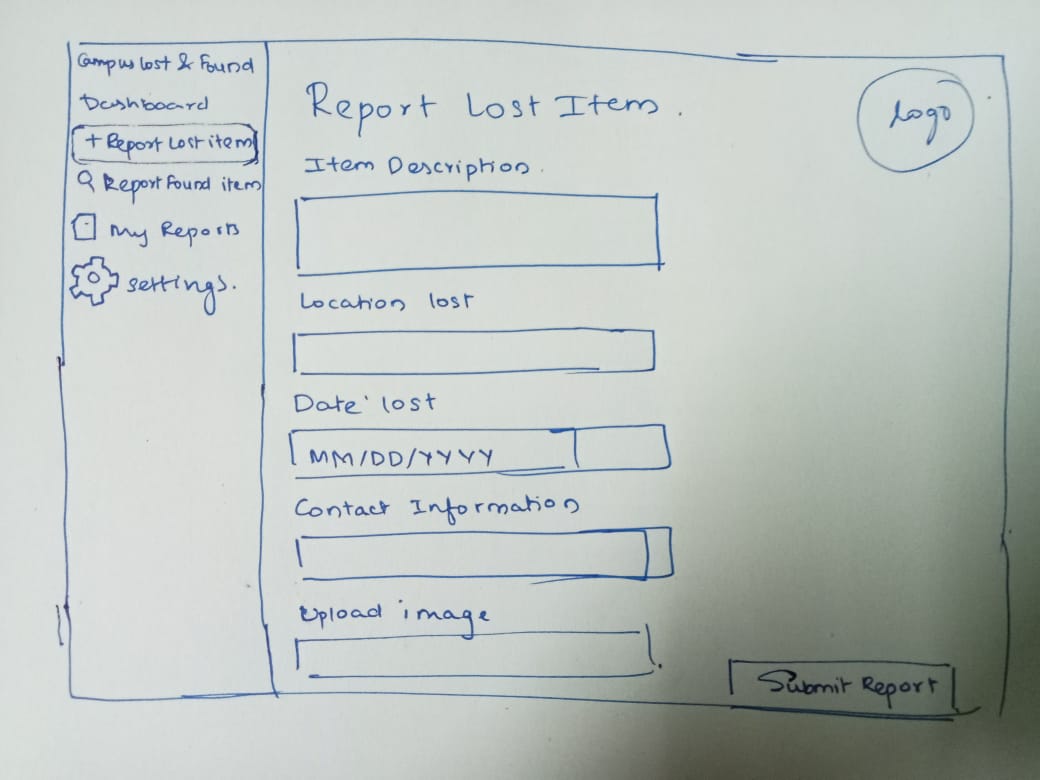 Campus Lost & Found
Dashboard
+ Report Lost item
Report Found item
My Reports
settings.
Report Lost Item.
Logo
Item Description.
Location lost
Date lost
MM/DD/YYYY
Contact Information
Upload image
Submit Report